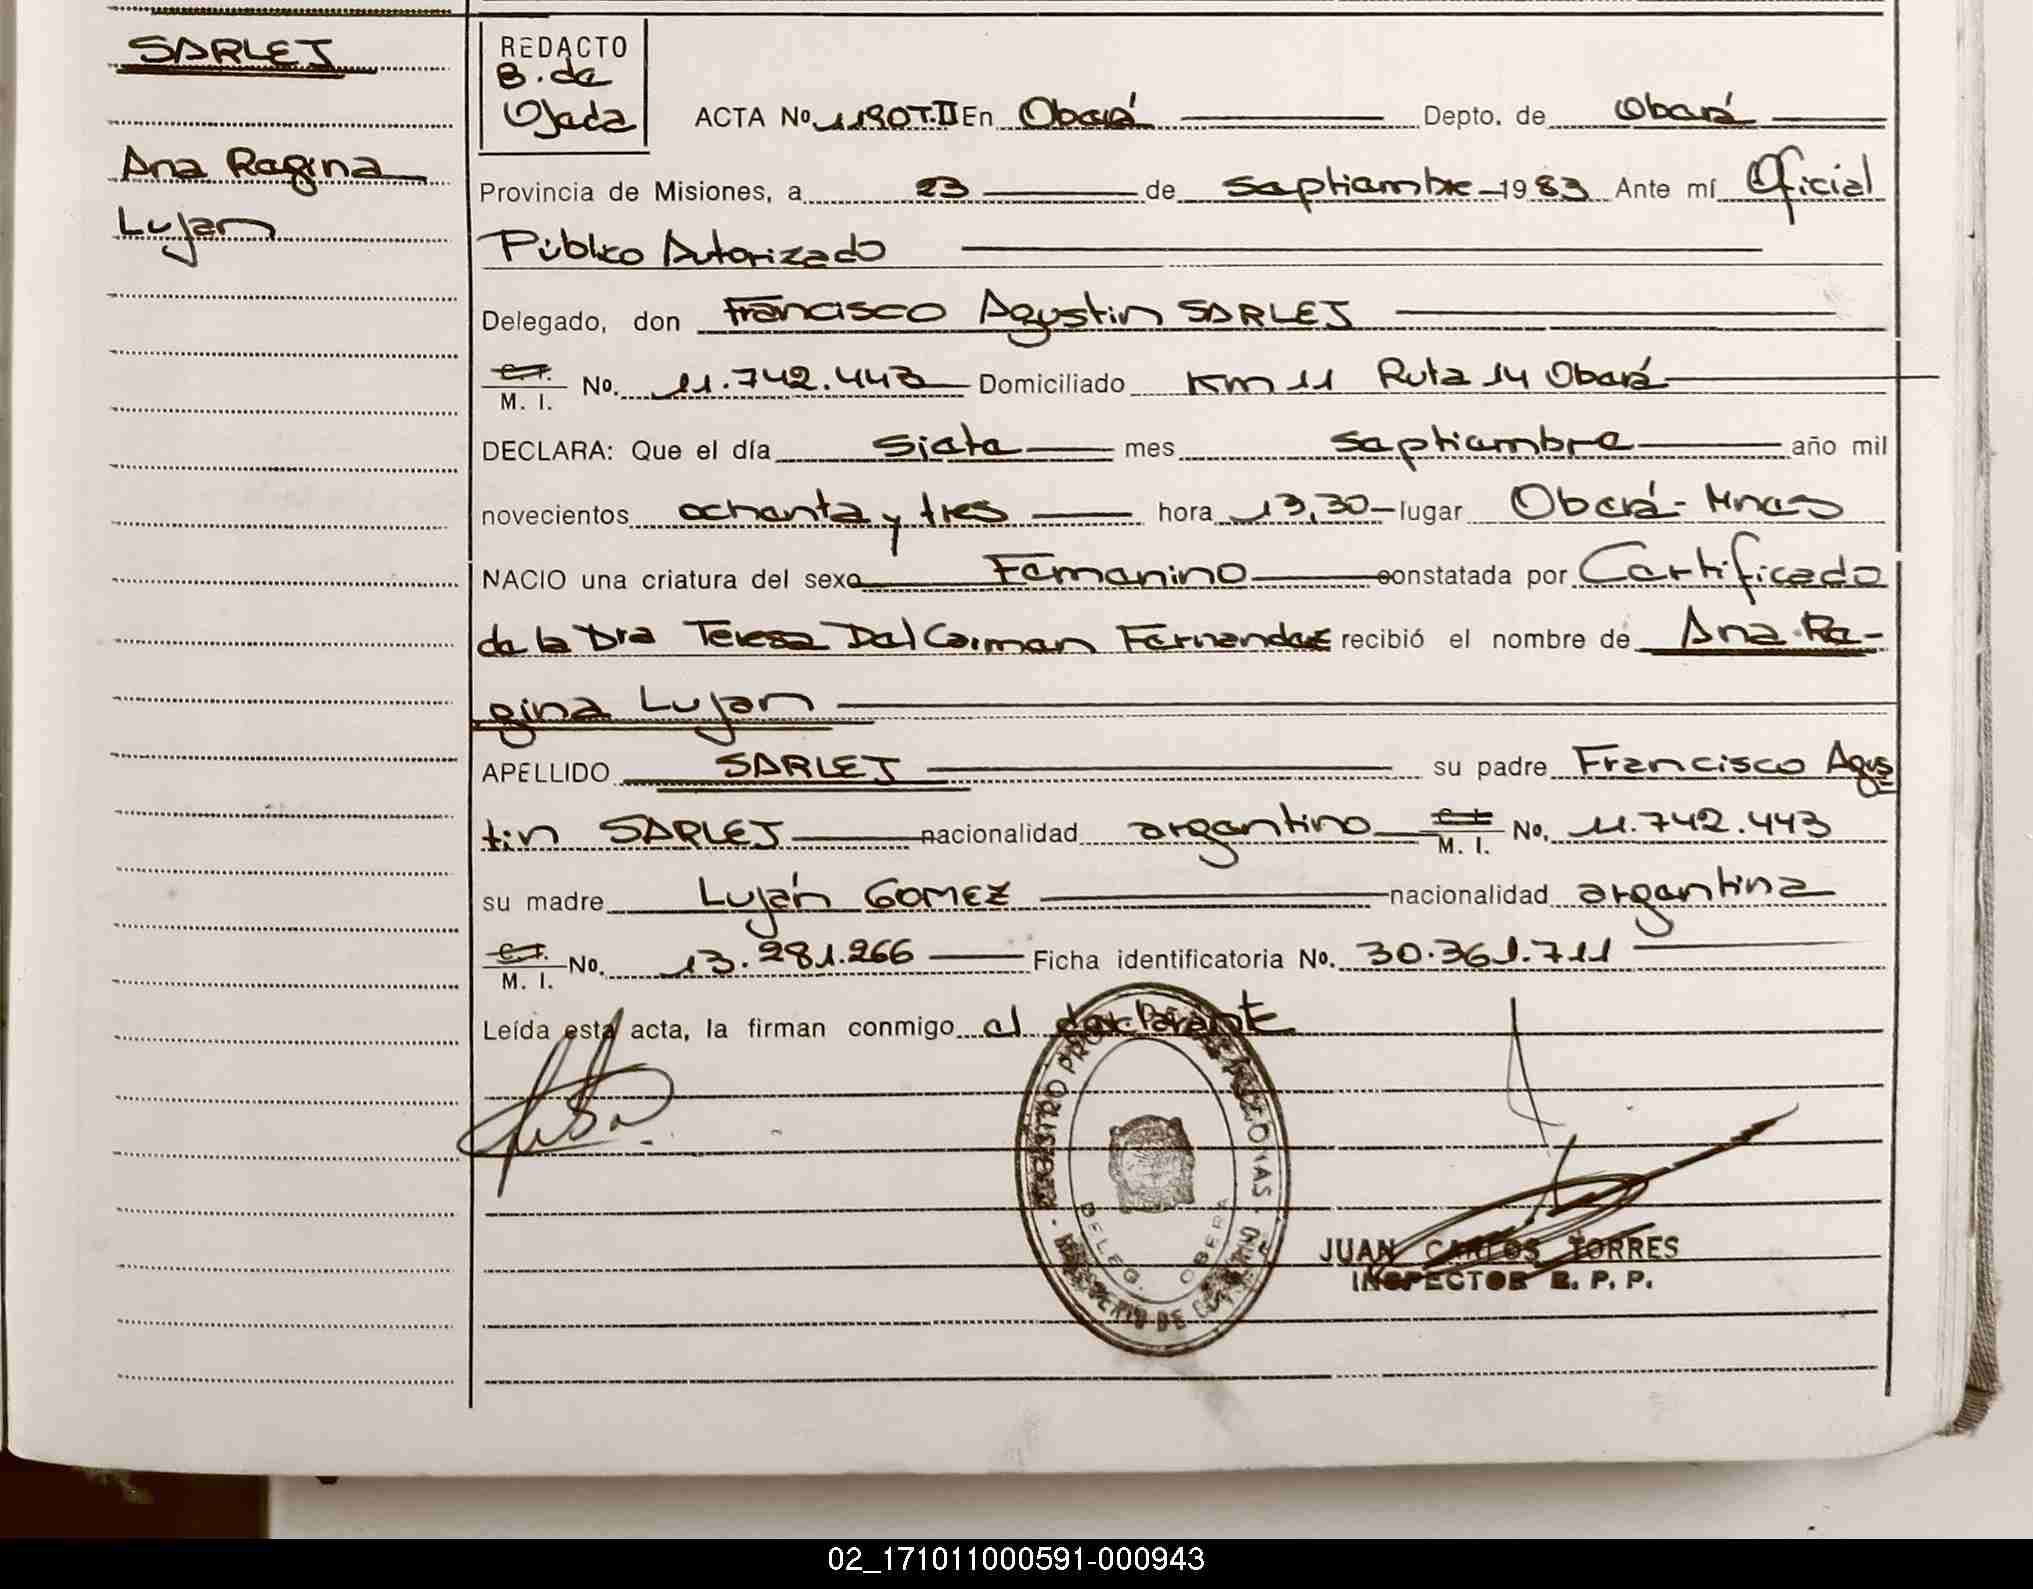 SARLEJ
Ana Regina
Lujan
REDACTO
B. de
Ojeda
ACTA No. 1190T.II En Oberá Depto. de Oberá
Provincia de Misiones, a 23 de septiembre 1983 Ante mí Oficial
Público Autorizado
Delegado, don Francisco Agustin SARLEJ
C.I. M. I. No. 11.742.443 Domiciliado Km 11 Ruta 14 Oberá
DECLARA: Que el día siete mes septiembre año mil
novecientos ochenta y tres hora 13,30 lugar Oberá- Mnes
NACIO una criatura del sexo Femenino constatada por Certificado
de la Dra Teresa Del Carmen Fernandez recibió el nombre de Ana Re-
gina Lujan
APELLIDO SARLEJ su padre Francisco Agus
tin SARLEJ nacionalidad argentino C.I. M. I. No. 11.742.443
su madre Luján GOMEZ nacionalidad argentina
C.I. M. I. No. 13.281.266 Ficha identificatoria No. 30.361.711
Leída esta acta, la firman conmigo el declarante
REGISTRO
DELEG. OBERA
JUAN CARLOS TORRES
INSPECTOR R. P. P.
02_171011000591-000943